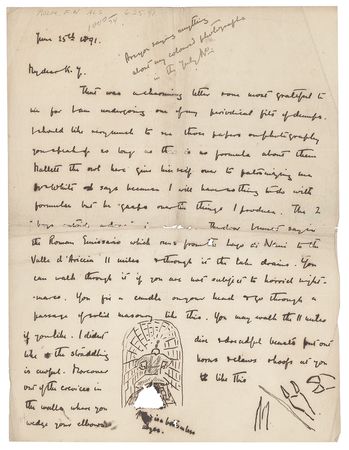 Rolfe, F.W. ALS 6-25-91
June 25th 1891.
Are you saying anything
about my coloured photographs
in the July No?
My dear K. J.
That was a charming letter & was most grateful to
me for I am undergoing one of my periodical fits of dumps.
I should like very much to see those papers on photography
you speak of so long as there is no formula about them
the owl here gives himself over to patronizing me
says because I will have nothing to do with
formulas but he gasps over the things I produce. The 2
the Roman Emissario which runs from the Lago di Nemi to the
Valle d'Ariccia 1½ miles & through it the lake drains. You
can walk through it if you are not subject to horrid night-
mares. You fix a candle on your head & go through a
passage of solid masonry like this. You may walk the 1½ miles
if you like. I didn't
like the straddling
is awful. Moreover
out of the crevices in
the walls where you
wedge your elbows
dire & dreadful beasts put out
horns & claws & hoofs at you
like this